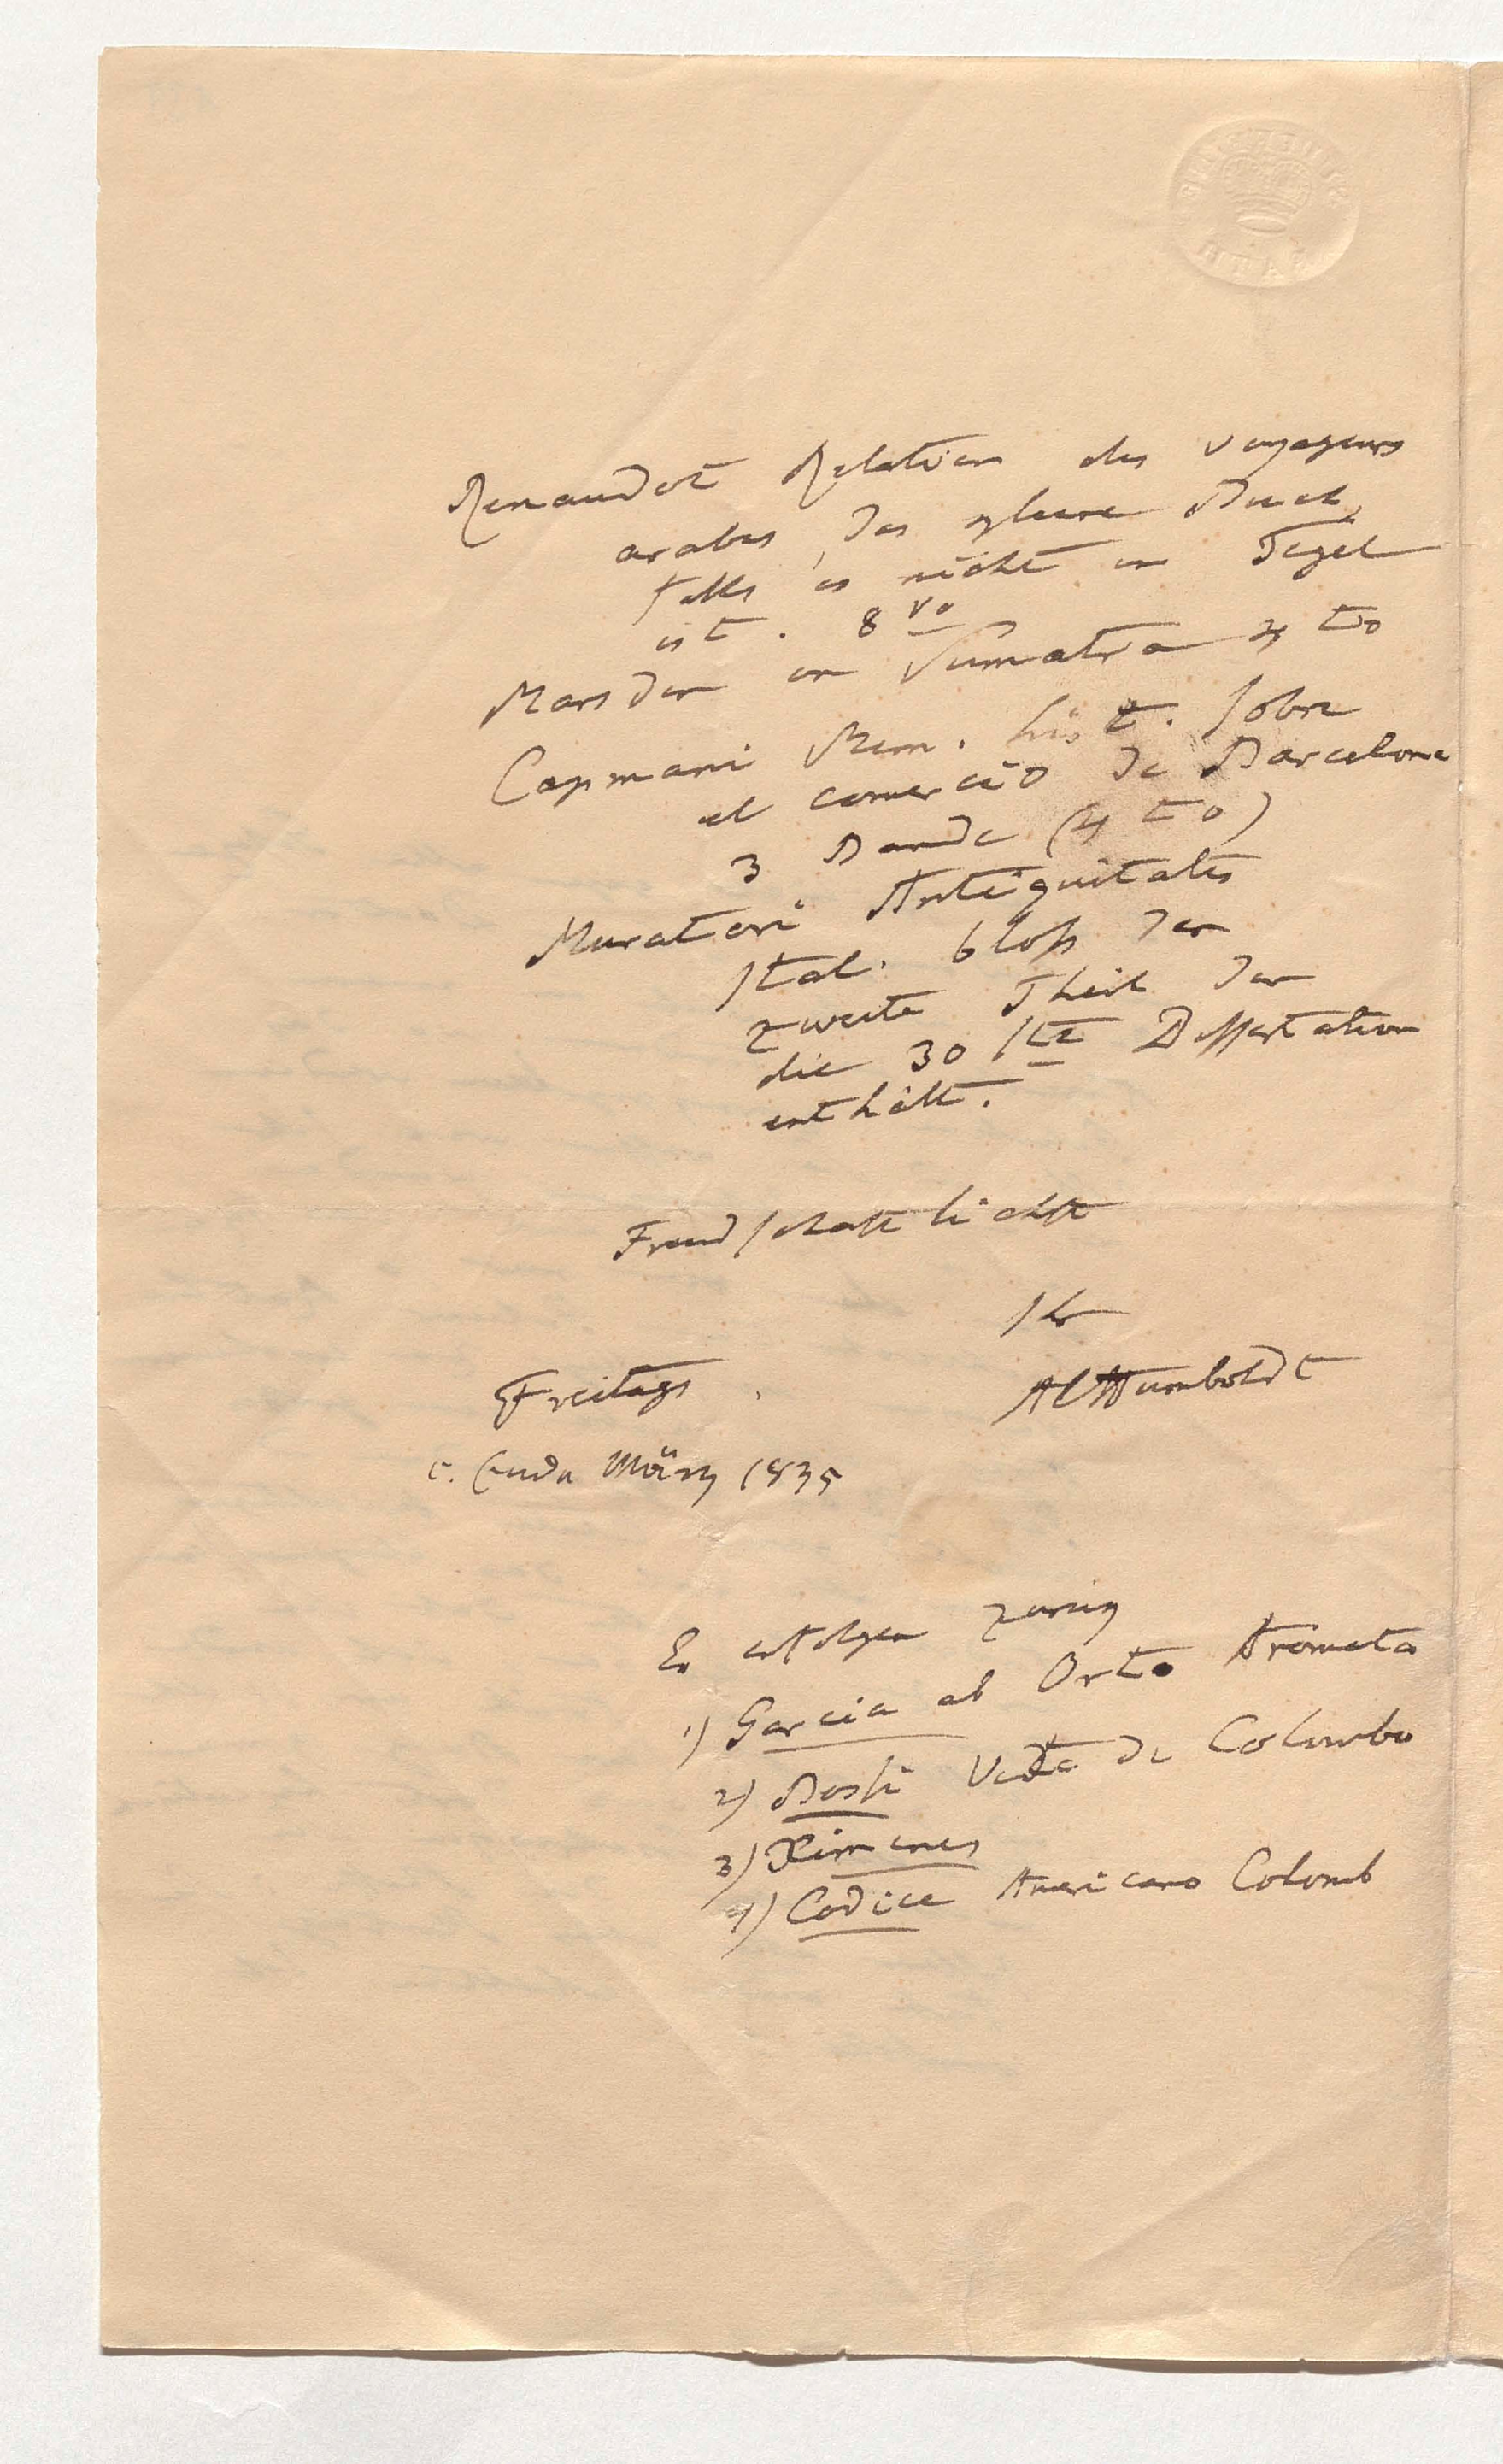 Renaudot Relation des voyageurs
arabes, das kleine Buch,
falls es nicht in Tegel
ist. 8vo
Marsden on Sumatra 4to
Capmani Mem. hist. sobre
el comercio de Barcelona
3 Bande (4to)
Muratori Antiquitates
Ital. bloß der
zweite Theil der
die 30ste Dissertation
enthält.
Freundschaftlichst
Ihr
AlHumboldt
Freitags.
c. Ende März 1835
Es erfolgen zurük
1) Garcia ab Orto Aromata
2) Bossi Vita de Colombo
3) Ximenes
4) Codice Americano Colomb